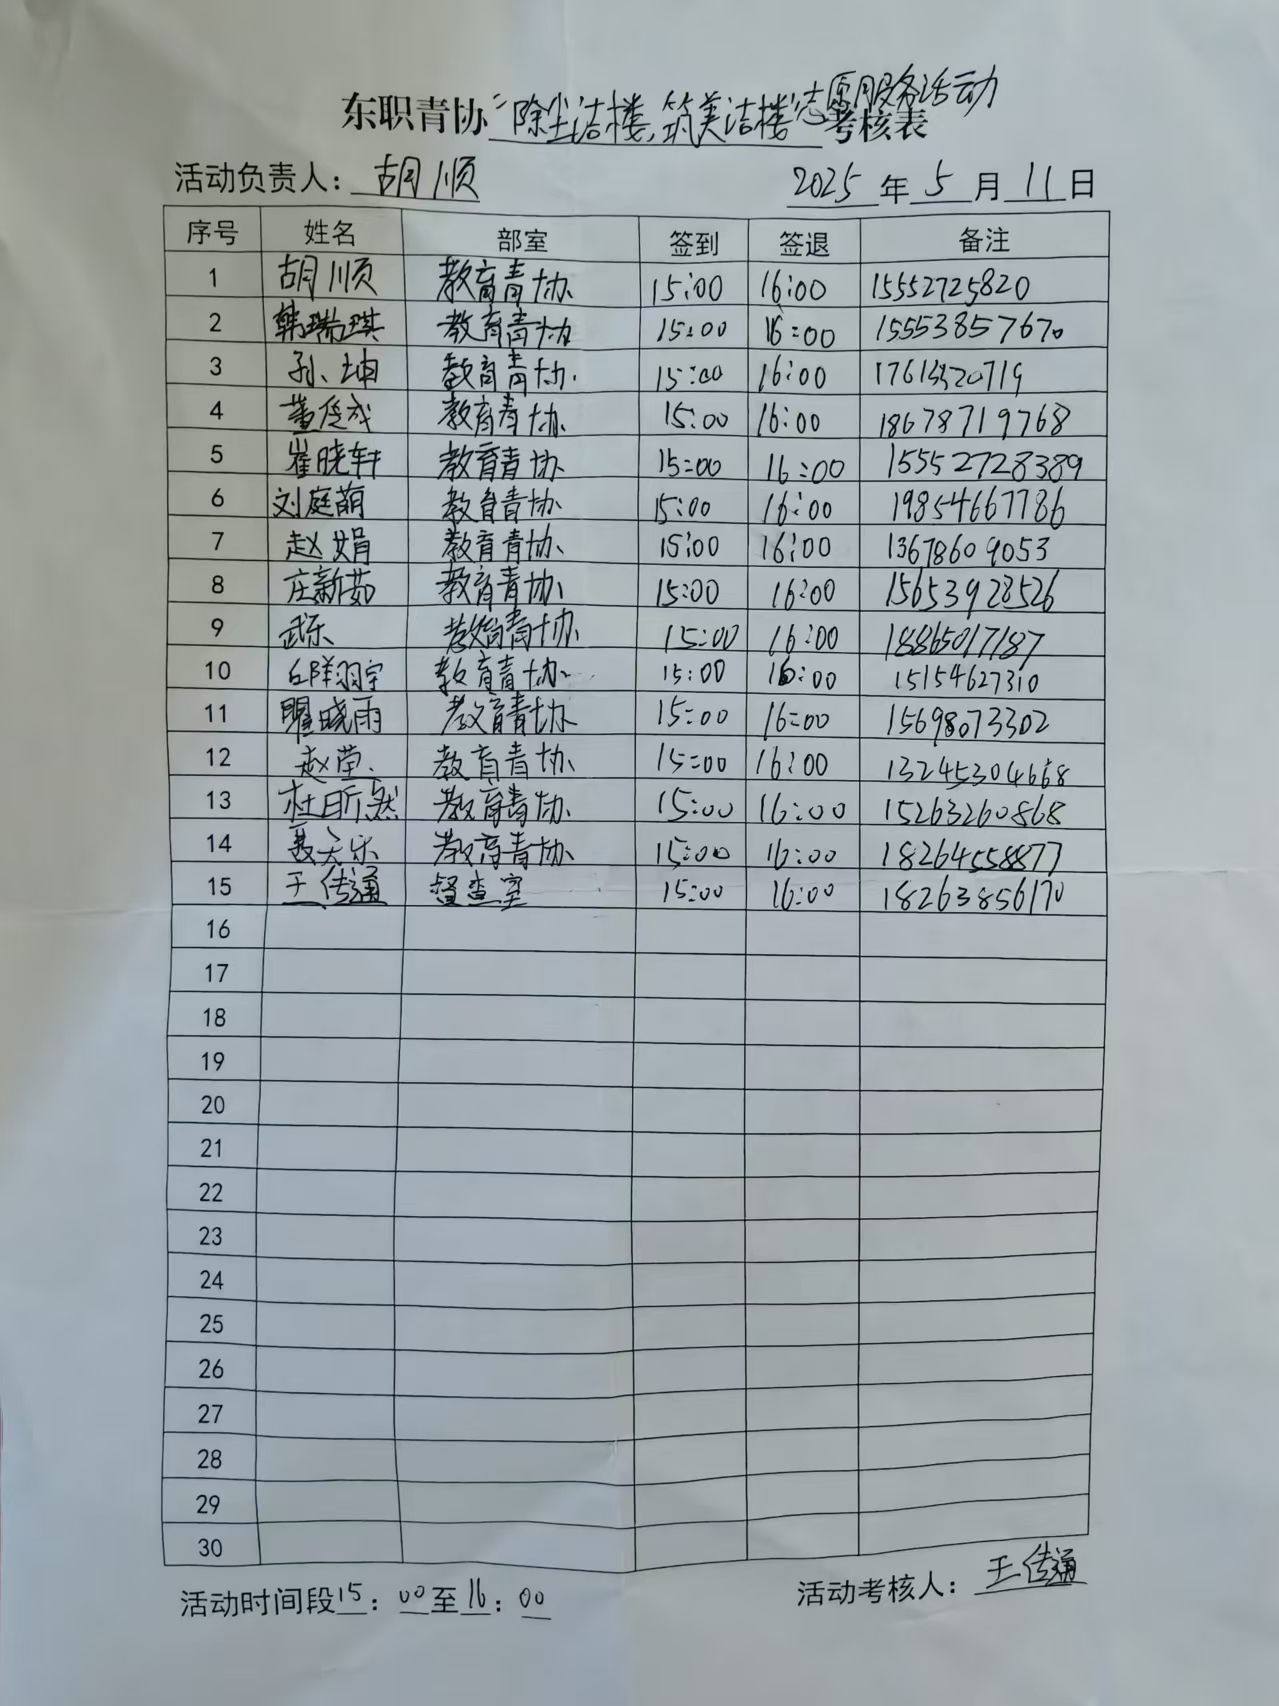 东职青协“除尘洁楼,筑美洁楼”志愿服务活动考核表
活动负责人: 胡顺 2025 年 5 月 11 日
序号 姓名 部室 签到 签退 备注
1 胡顺 教育青协 15:00 16:00 15552725820
2 韩瑞琪 教育青协 15:00 16:00 15553857670
3 孙坤 教育青协 15:00 16:00
4 教育青协 15:00 16:00 18678719768
5 崔晓轩 教育青协 15:00 16:00 15552728389
6 刘庭萌 教育青协 15:00 16:00 19854667786
7 赵娟 教育青协 15:00 16:00 13678609053
8 庄新茹 教育青协 15:00 16:00 15653928526
9 武乐 教育青协 15:00 16:00 18865017187
10 教育青协 15:00 16:00 15154627310
11 瞿晓雨 教育青协 15:00 16:00 15698073302
12 赵莹 教育青协 15:00 16:00 13245304668
13 杜昕然 教育青协 15:00 16:00 15263260868
14 聂天乐 教育青协 15:00 16:00 18264558877
15 王传通 督查室 15:00 16:00 18263856170
16
17
18
19
20
21
22
23
24
25
26
27
28
29
30
活动时间段15:00至16:00 活动考核人: 王传通